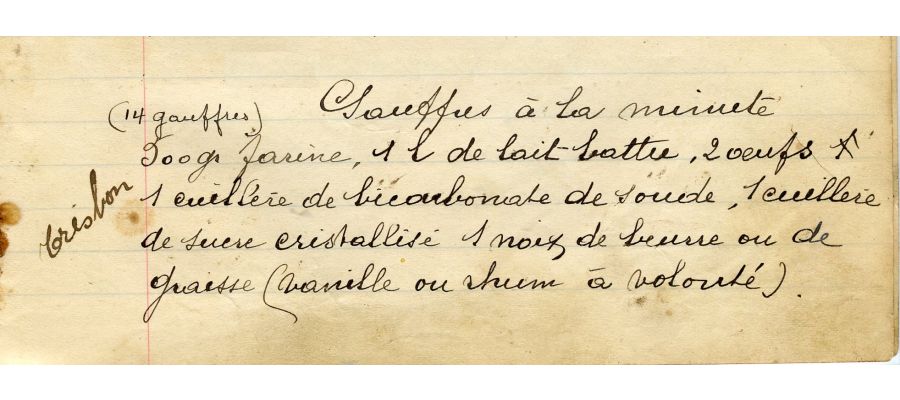 Gauffres à la minute
(14 gauffres)
500gr farine, 1 l de lait battu, 2 oeufs
1 cuillère de bicarbonate de soude, 1 cuillère
de sucre cristallisé 1 noix de beurre ou de
graisse (vanille ou rhum à volonté).
trèsbon